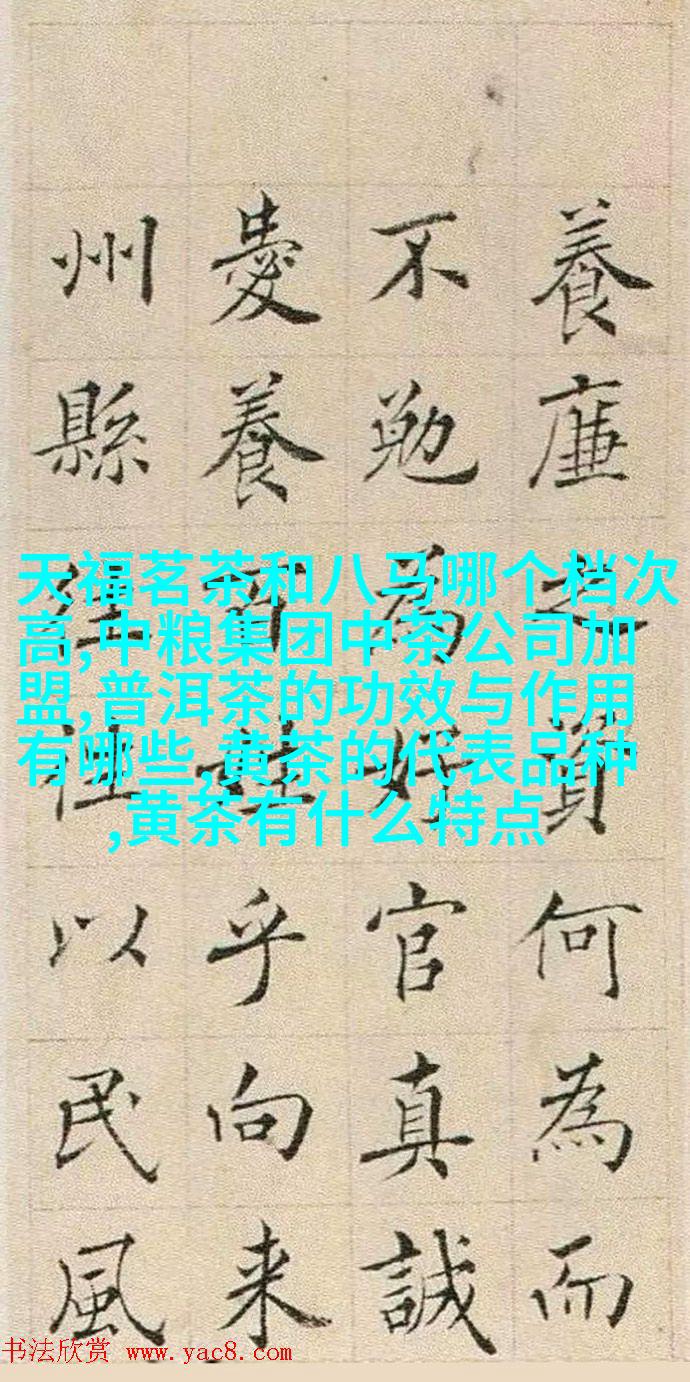 養廉之資何為而
不勉為好官真誠
愛養百姓乎向来
州縣往往以民風
天福茗茶和八马哪个档次
高,中粮集团中茶公司加
盟,普洱茶的功效与作用
有哪些,黄茶的代表品种
,黄茶有什么特点
书法欣赏 www.yac8.com